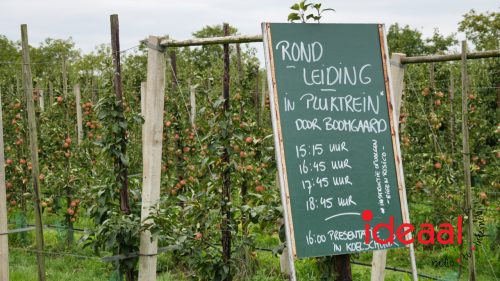 ROND
LEIDING
IN "PLUKTREIN"
DOOR BOOMGAARD
15:15 UUR
16:45 UUR
17:45 UUR
18:45 UUR
16:00 PRESENTATIE
IN KOELSCHUUR
EIGEN RISICO
ideaal.org